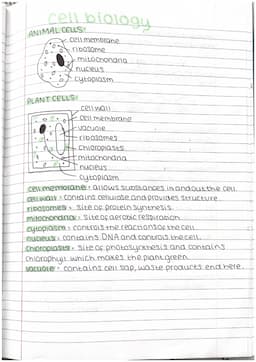 cell biology
ANIMAL CELLS:
cell membrane
ribosome
mitochondria
nucleus
cytoplasm
PLANT CELLS:
cell wall
cell membrane
vacuole
ribosomes
chloroplasts
mitochondria
nucleus
cytoplasm
cell membrane - allows substances in and out the cell.
cell wall - contains cellulose and provides structure.
ribosomes - site of protein synthesis.
mitochondria - site of aerobic respiration.
cytoplasm - controls the reactions of the cell.
nucleus - contains DNA and controls the cell.
chloroplasts - site of photosynthesis and contains
chlorophyll which makes the plant green.
vacuole - contains cell sap, waste products end here.